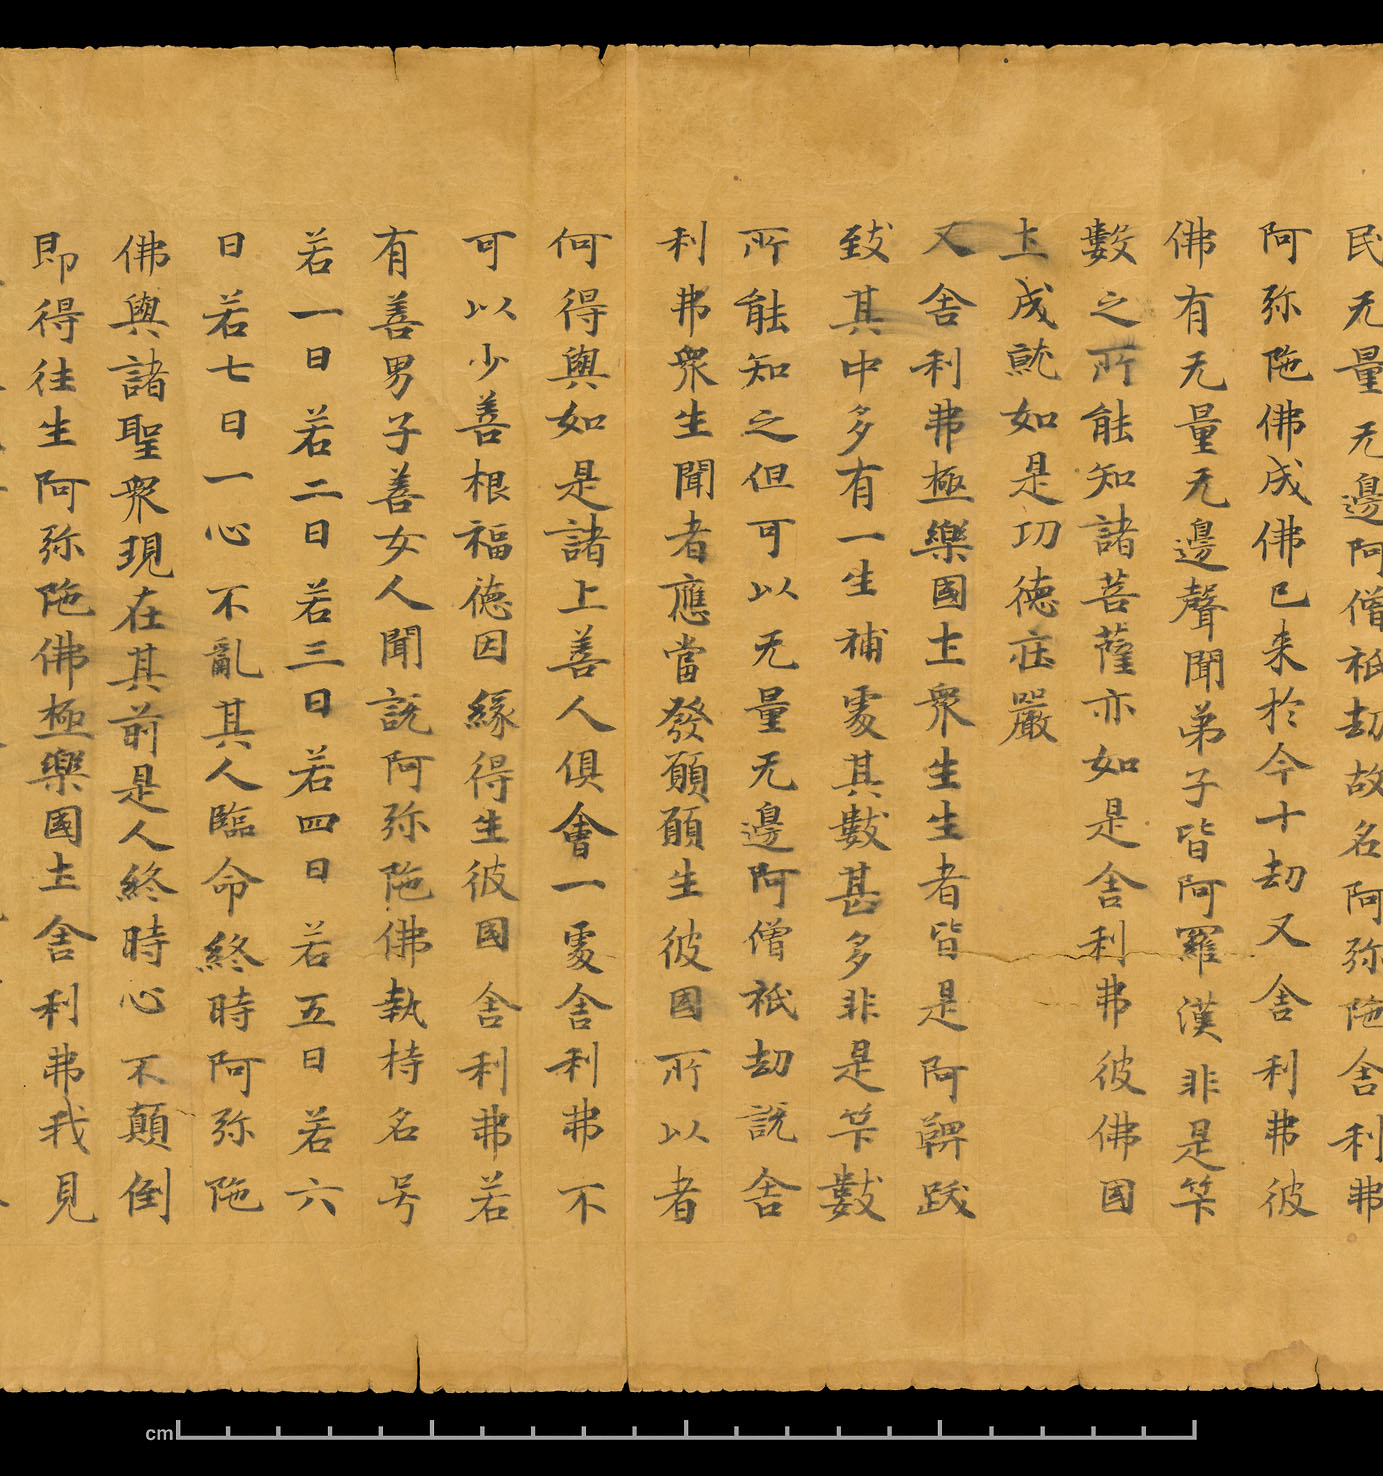 民无量无邊阿僧祇劫故名阿弥陁舍利弗
阿弥陁佛成佛已来於今十劫又舍利弗彼
佛有无量无邊聲聞弟子皆阿羅漢非是筭
數之所能知諸菩薩亦如是舍利弗彼佛國
土成就如是功德莊嚴
又舍利弗極樂國土衆生生者皆是阿鞞跋
致其中多有一生補處其數甚多非是筭數
所能知之但可以无量无邊阿僧祇劫説舍
利弗衆生聞者應當發願願生彼國所以者
何得與如是諸上善人俱會一處舍利弗不
可以少善根福德因緣得生彼國舍利弗若
有善男子善女人聞説阿弥陁佛執持名号
若一日若二日若三日若四日若五日若六
日若七日一心不亂其人臨命終時阿弥陁
佛與諸聖衆現在其前是人終時心不顛倒
即得往生阿弥陁佛極樂國土舍利弗我見
cm